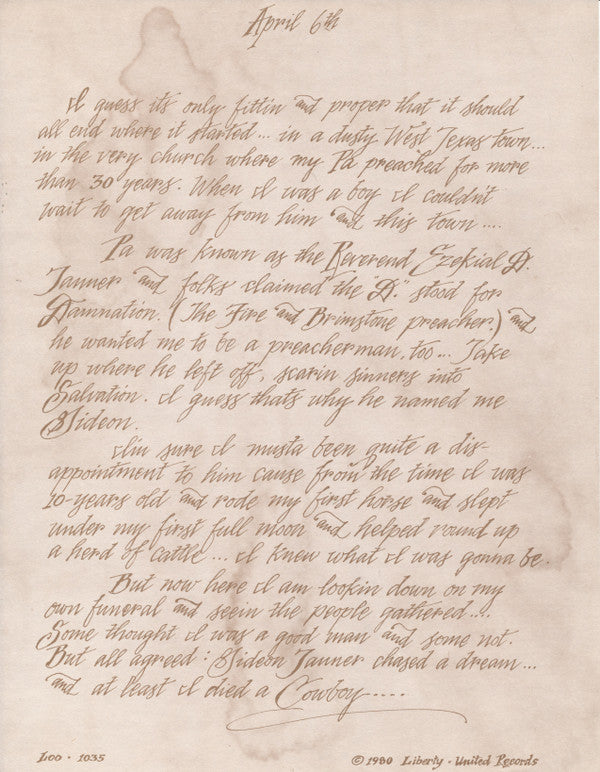 April 6th
I guess its only fittin and proper that it should
all end where it started... in a dusty West Texas town...
in the very church where my Pa preached for more
than 30 years. When I was a boy I couldn't
wait to get away from him and this town....
Pa was known as the Reverend Ezekial D.
Tanner and folks claimed the "D." stood for
Damnation. (The Fire and Brimstone preacher.) and
he wanted me to be a preacherman, too... Take
up where he left off, scarin sinners into
Salvation. I guess thats why he named me
Gideon.
I'm sure I musta been quite a dis-
appointment to him cause from the time I was
10-years old and rode my first horse and slept
under my first full moon and helped round up
a herd of cattle... I knew what I was gonna be.
But now here I am lookin down on my
own funeral and seein the people gathered....
Some thought I was a good man and some not.
But all agreed: Gideon Tanner chased a dream...
and at least I died a Cowboy....
LOO · 1035
© 1980 Liberty · United Records